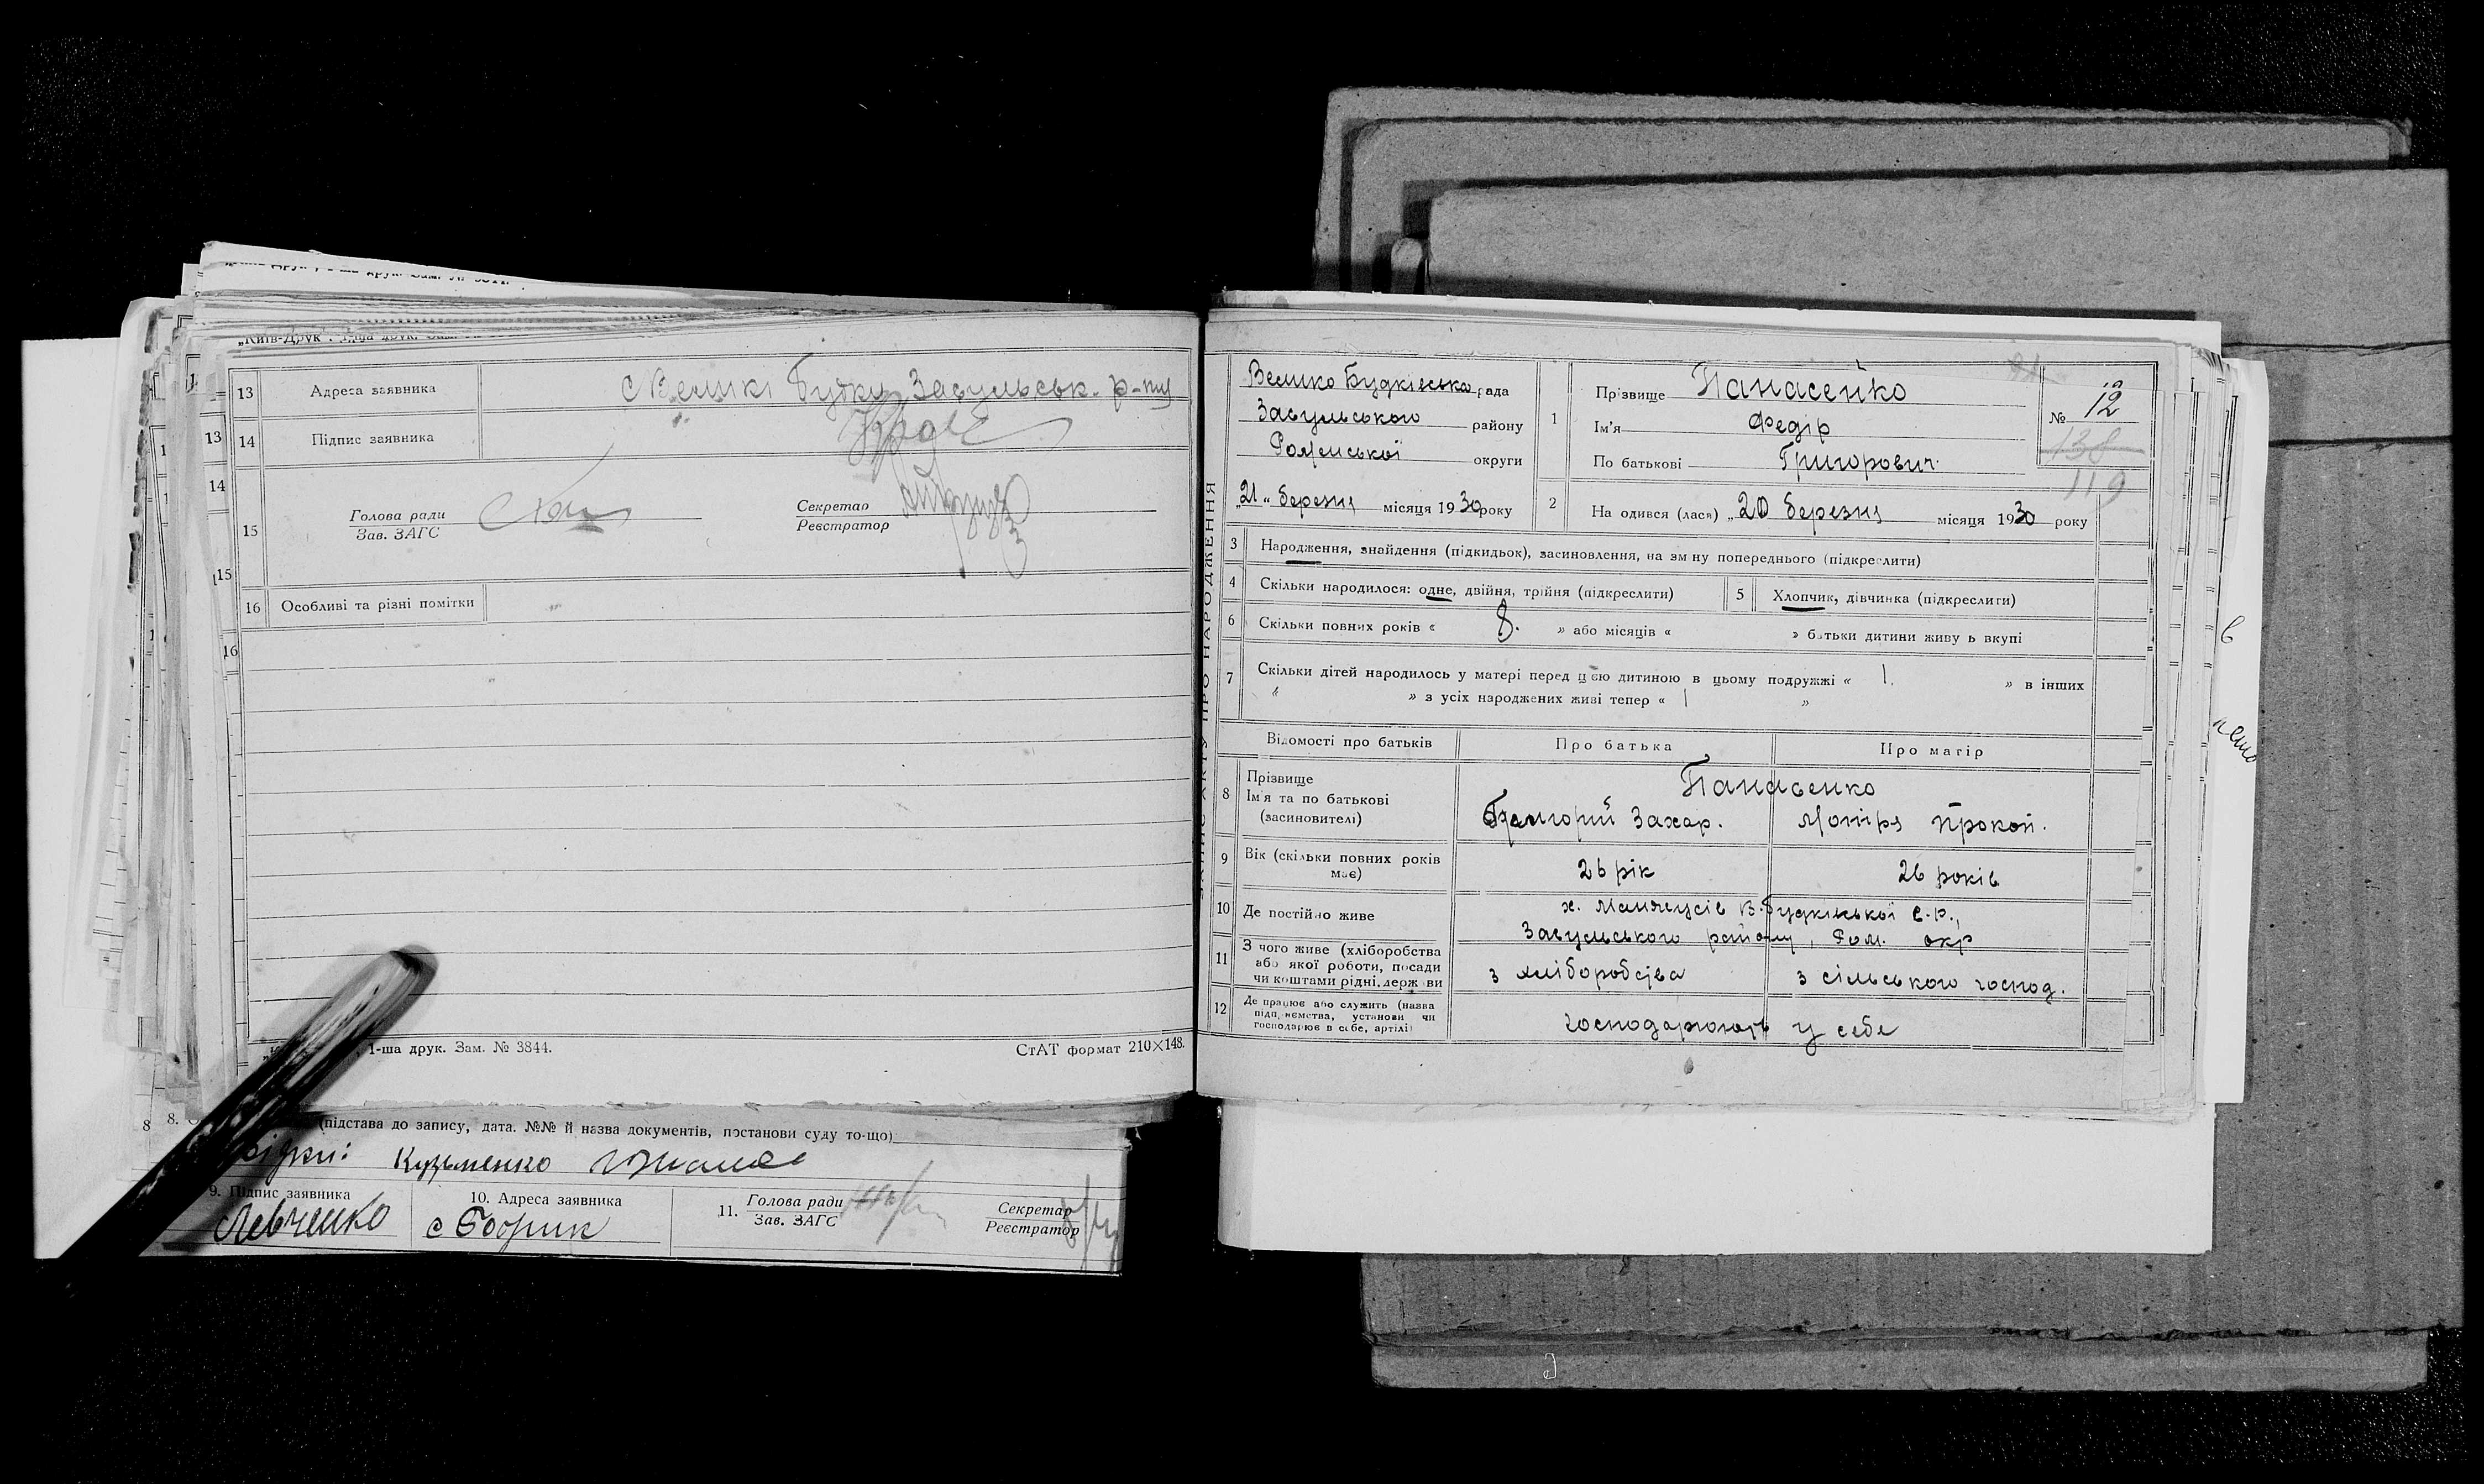 „Київ-Друк". 1-ша друк. Зам.
13 Адреса заявника с Великі Будки Засульськ. р-ну
14 Підпис заявника
15 Голова ради
Зав. ЗАГС
Секретар
Реєстратор
16 Особливі та різні помітки
1-ша друк. Зам. № 3844. СтАТ формат 210×148.
13
14
15
16
8. (підстава до запису, дата. №№ й назва документів, постанови суду то-що)
Кузьменко
9. Підпис заявника
Левченко
10. Адреса заявника
с Бобрик
11. Голова ради
Зав. ЗАГС
Секретар
Реєстратор
ПРО НАРОДЖЕННЯ
Велико Будківська рада
Засульського району
Роменської округи
„21" березня місяця 1930 року
1 Прізвище Панасенко
Ім'я Федір
По батькові Григорович
№ 12
138
119
2 На одився (лася) „20 березня місяця 1930 року
3 Народження, знайдення (підкидьок), засиновлення, на зм ну попереднього (підкреслити)
4 Скільки народилося: одне, двійня, трійня (підкреслити)
5 Хлопчик, дівчинка (підкреслити)
6 Скільки повних років « 8. » або місяців « » батьки дитини живу ь вкупі
7 Скільки дітей народилось у матері перед цією дитиною в цьому подружжі « 1. » в інших
« » з усіх народжених живі тепер « 1 »
Відомості про батьків Про батька Про матір
8 Прізвище
Ім'я та по батькові
(засиновителі)
Панасенко
Григорий Захар. Мотря Прокоп.
9 Вік (скільки повних років
має)
26 рік 26 років
10 Де постійно живе
х. В.Будківської с.р.,
Засульського району, Ром. окр
11 З чого живе (хліборобства
або якої роботи, посади
чи коштами рідні, держ ви
з хліборобства з сільського господ.
12 Де працює або служить (назва
підп, иємства, установи чи
господарює в себе, артілі)
господарюють у себе